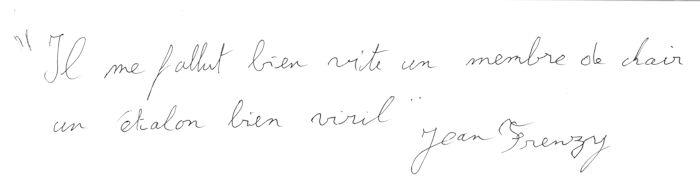 "Il me fallut bien vite un membre de chair
un étalon bien viril"
Jean Frenzy